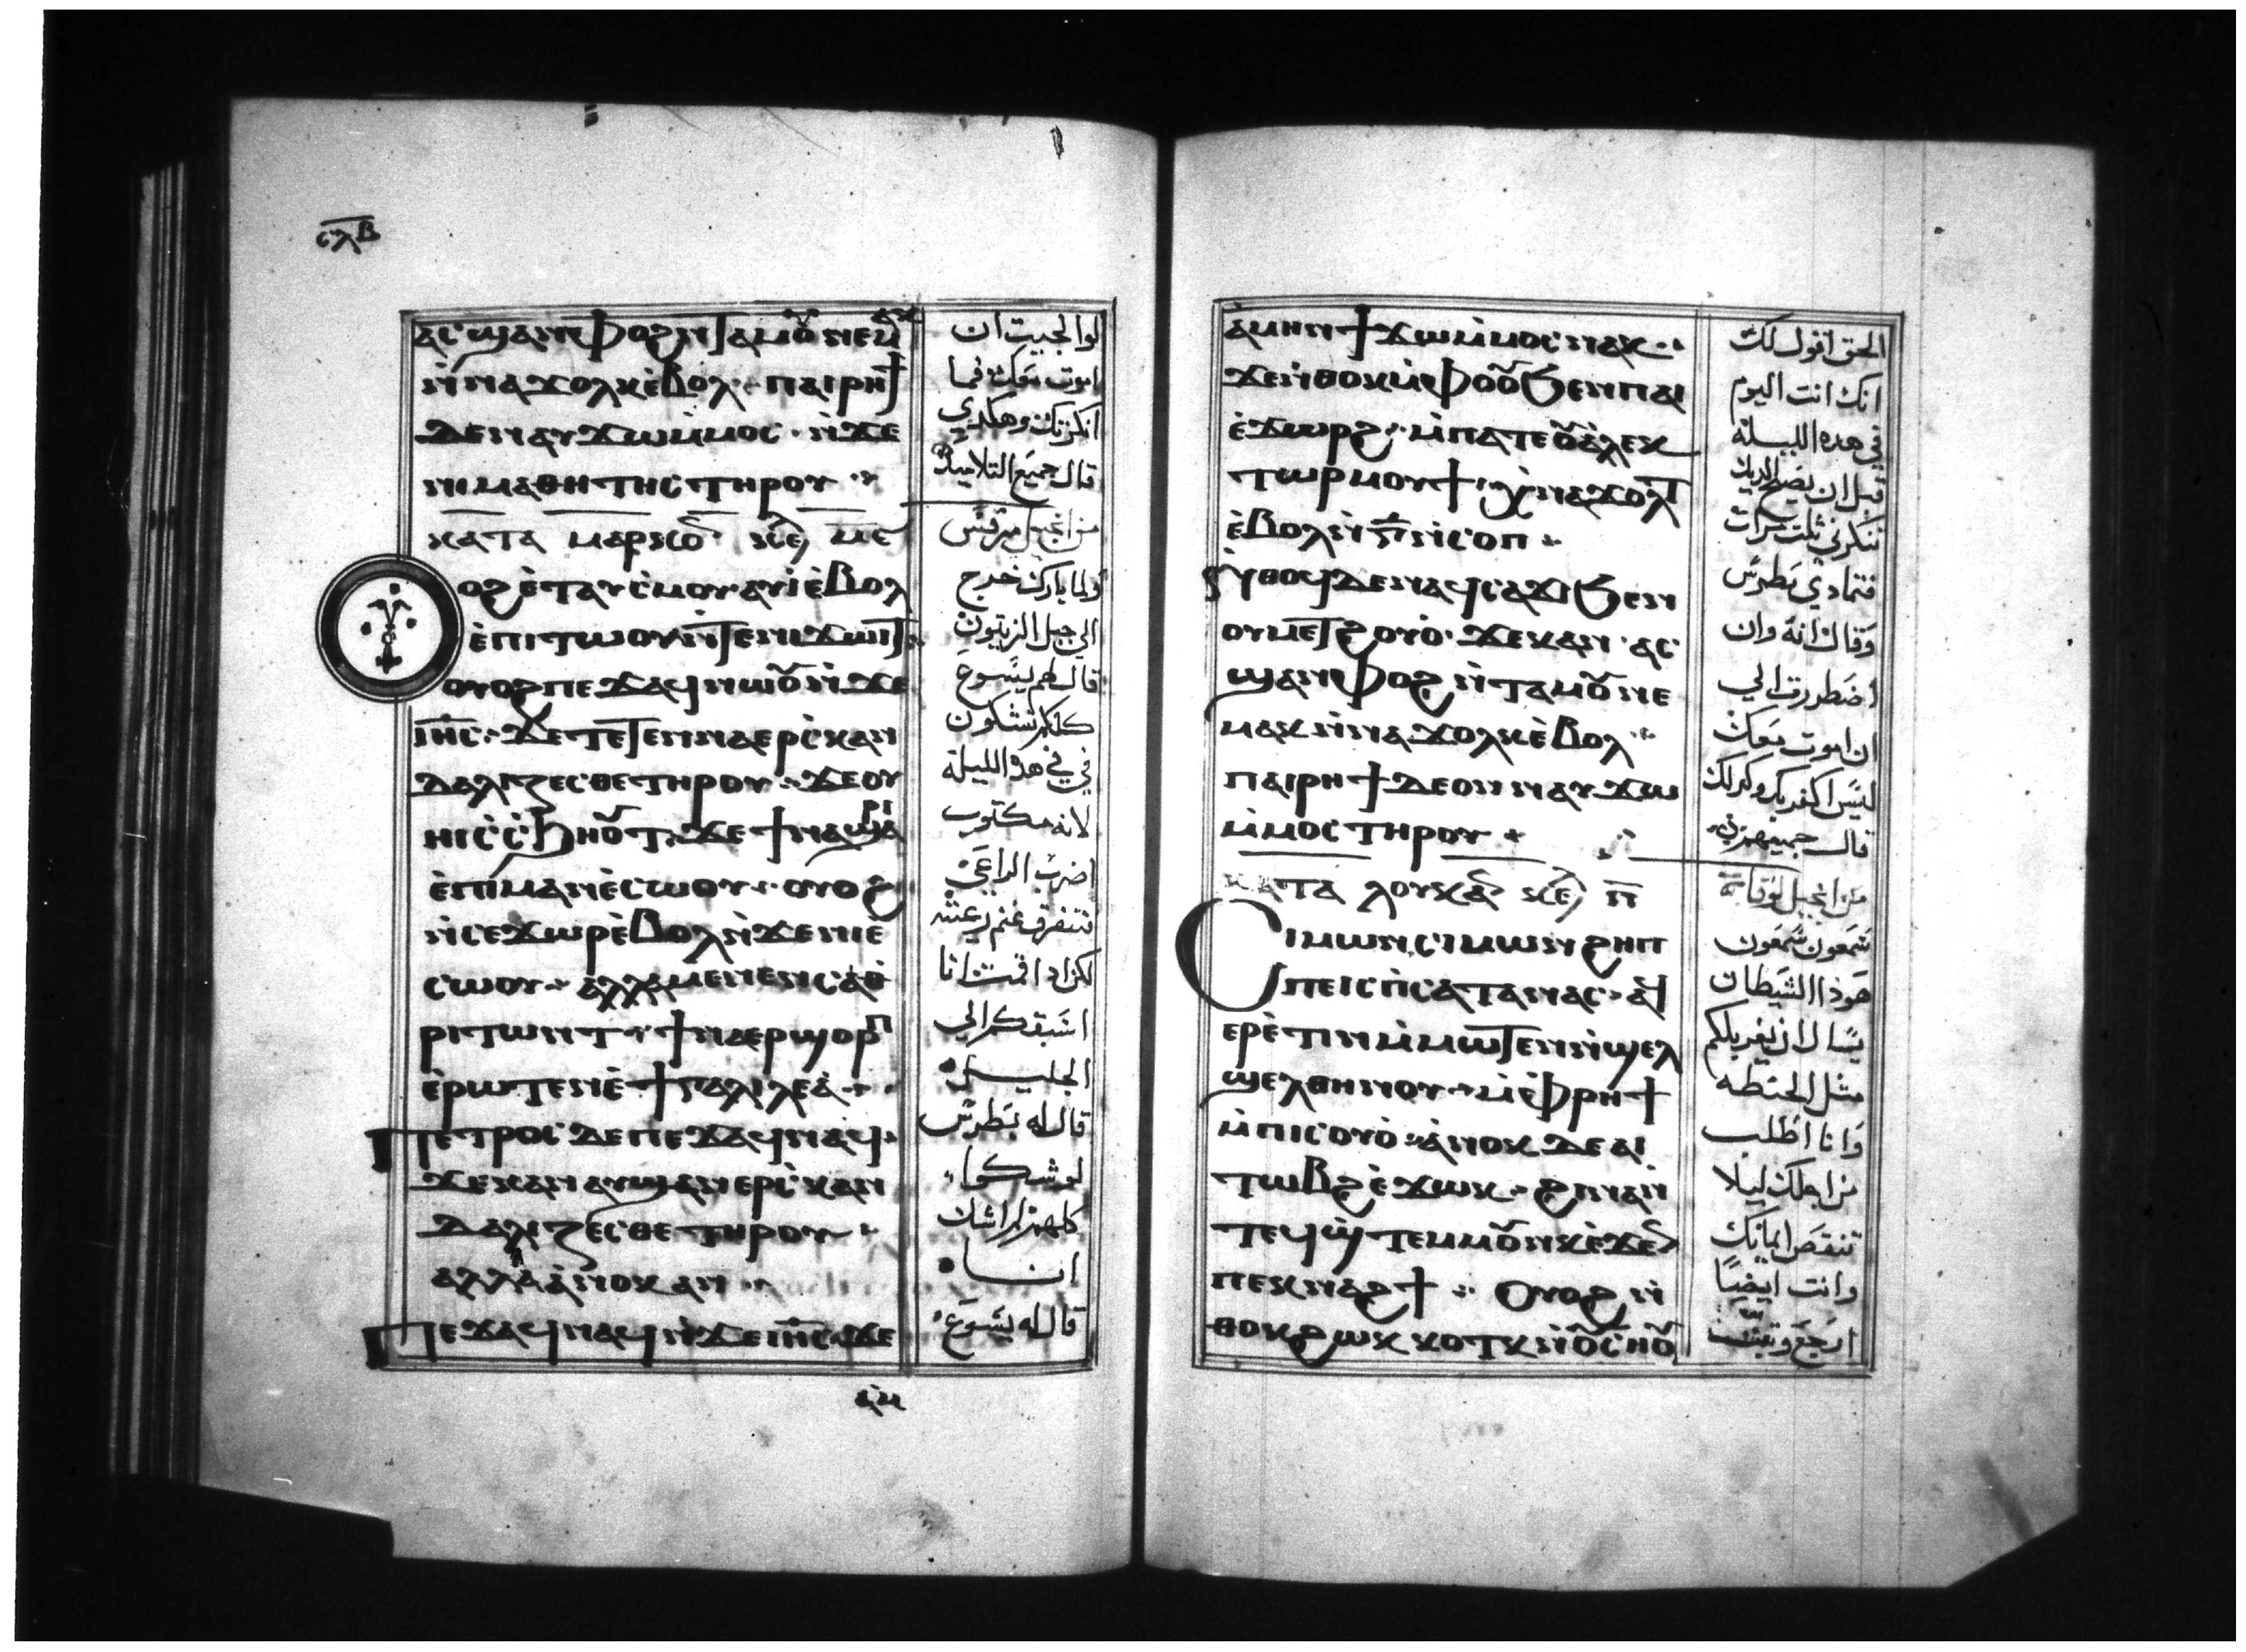 ⲥⲗⲃ
ⲁⲥϣⲁⲛⲫⲟϩ ⲛⲧⲁⲙⲟⲩ ⲛⲉⲙⲁⲕ
ⲛ̀ⲛⲁϫⲟⲗⲕ ⲉ̀ⲃⲟⲗ ⲡⲁⲓⲣⲏϯ
ⲇⲉ ⲛⲁⲩϫⲱ ⲙ̀ⲙⲟⲥ ⲛ̀ϫⲉ
ⲛⲓⲙⲁⲑⲏⲧⲏⲥ ⲧⲏⲣⲟⲩ
ⲕⲁⲧⲁ ⲙⲁⲣⲕⲟⲛ
ⲟϩ ⲉ̀ⲧⲁⲩⲥ̀ⲙⲟⲩ ⲁⲩⲓ̀ ⲉ̀ⲃⲟⲗ
ⲉ̀ⲡⲓⲧⲱⲟⲩ ⲛ̀ⲧⲉ ⲛⲓϫⲱⲓⲧ
ⲟⲩⲟϩ ⲡⲉϫⲁϥ ⲛⲱⲟⲩ ⲛ̀ϫⲉ
ⲓⲏⲥ ϫⲉ ⲧⲉⲧⲉⲛⲛⲁⲉⲣⲥ̀ⲕⲁⲛ
ⲇⲁⲗⲓⲍⲉⲥⲑⲉ ⲧⲏⲣⲟⲩ ϫⲉⲟⲩ
ⲏⲓ ⲥ̀ⲥ̀ϧⲏⲟⲩⲧ ϫⲉ ϯⲛⲁϣⲁⲣⲓ
ⲉ̀ⲡⲓⲙⲁⲛⲉ̀ⲥⲱⲟⲩ ⲟⲩⲟϩ
ⲛ̀ⲥⲉϫⲱⲣ ⲉ̀ⲃⲟⲗ ⲛ̀ϫⲉ ⲛⲓⲉ̀
ⲥⲱⲟⲩ ⲁⲗⲗⲁ ⲙⲉⲛⲉⲛⲥⲁ ⲑ
ⲣⲓⲧⲱⲛⲧ ϯⲛⲁⲉⲣϣⲟⲣⲡ
ⲉ̀ⲣⲱⲧⲉⲛ ⲉ̀ϯⲅⲁⲗⲓⲗⲉⲁ̀
ⲡⲉⲧⲣⲟⲥ ⲇⲉ ⲡⲉϫⲁϥ ⲛⲁϥ
ϫⲉ ⲕⲁⲛ ⲁⲩϣⲁⲛⲉⲣⲥ̀ⲕⲁⲛ
ⲇⲁⲗⲓⲍⲉⲥⲑⲉ ⲧⲏⲣⲟⲩ
ⲁⲗⲗⲁ ⲁ̀ⲛⲟⲕ ⲁⲛ
ⲡⲉϫⲁϥ ⲛⲁϥ ⲛ̀ϫⲉ ⲓⲏⲥ ϫⲉ
ⲁ̀ⲙ
لوالجيت ان
اموت معك فما
انكرتك وهكدي
قال جميع التلاميد
من انجيل مرقس
ولما بارك خرج
الي جبل الزيتون
قال لهم يسوع
كلكم تشكون
في في هده الليلة
لانه مكتوب
اضرب الراعي
فتتفرق غنم رعيته
لكن اد اقمت انا
اسبقكم الي
الجليل
قال له بطرس
لو شكوا
كلهم لم اشك
انا
قال له يسوع
ⲁ̀ⲙⲏⲛ ϯϫⲱ ⲙ̀ⲙⲟⲥ ⲛⲁⲕ
ϫⲉ ⲛ̀ⲑⲟⲕ ⲙ̀ⲫⲟⲟⲩ ϧⲉⲛ ⲡⲁⲓ
ⲉ̀ϫⲱⲣϩ ⲙ̀ⲡⲁⲧⲉ ⲟⲩⲁ̀ⲗⲉⲕ
ⲧⲱⲣ ⲙⲟⲩϯ ⲭ̀ⲛⲁϫⲟⲗⲧ
ⲉ̀ⲃⲟⲗ ⲛ̀ⲅ̅ ⲛ̀ⲥⲟⲡ
ⲛ̀ⲑⲟϥ ⲇⲉ ⲛⲁϥⲥⲁϫⲓ ϧⲉⲛ
ⲟⲩⲙⲉⲧϩⲟⲩⲟ̀ ϫⲉ ⲕⲁⲛ ⲁⲥ
ϣⲁⲛⲫⲟϩ ⲛ̀ⲧⲁⲙⲟⲩ ⲛⲉ
ⲙⲁⲕ ⲛ̀ⲛⲁϫⲟⲗⲕ ⲉ̀ⲃⲟⲗ
ⲡⲁⲓⲣⲏϯ ⲇⲉ ⲟⲛ ⲛⲁⲩϫⲱ
ⲙ̀ⲙⲟⲥ ⲧⲏⲣⲟⲩ
ⲕⲁⲧⲁ ⲗⲟⲩⲕⲁⲛ ⲕⲉ ⲡ̅
ⲥⲓⲙⲱⲛ ⲥⲓⲙⲱⲛ ϩⲏⲡ
ⲡⲉ ⲓⲥ ⲡ̀ⲥⲁⲧⲁⲛⲁⲥ ⲁϥ
ⲉⲣⲉ̀ⲧⲓⲛ ⲙ̀ⲙⲱⲧⲉⲛ ⲛ̀ϣⲉⲗ
ϣⲉⲗ ⲑⲏⲛⲟⲩ ⲙ̀ⲫⲣⲏϯ
ⲙ̀ⲡⲓⲥⲟⲩⲟ̀ ⲁ̀ⲛⲟⲕ ⲇⲉ ⲁⲓ
ⲧⲱⲃϩ ⲉ̀ϫⲱⲕ ϩⲓⲛⲁ ⲛ̀
ⲧⲉϥϣ̀ⲧⲉⲙⲙⲟⲩⲛⲕ ⲉ̀ϫⲉ
ⲡⲉⲕⲛⲁϩϯ ⲟⲩⲟϩ ⲛ̀
ⲑⲟⲕ ϩⲱⲕ ⲕⲟⲧⲕ ⲛ̀ⲟⲩⲥⲏⲟⲩ
الحق اقول لك
انك انت اليوم
في هده الليلة
قبل ان يصيح الديك
تنكرني ثلث مرات
فتمادي بطرس
وقال انه وان
اضطررت الي
ان اموت معك
ليس اكفر بك وكدلك
قال جميعهم
من انجيل لوقا
شمعون شمعون
هودا الشيطان
يسال ان يغربلكم
مثل الحنطه
وانا اطلب
من اجلك ليلا
تنقص ايمانك
وانت ايضا
ارجع وتبت